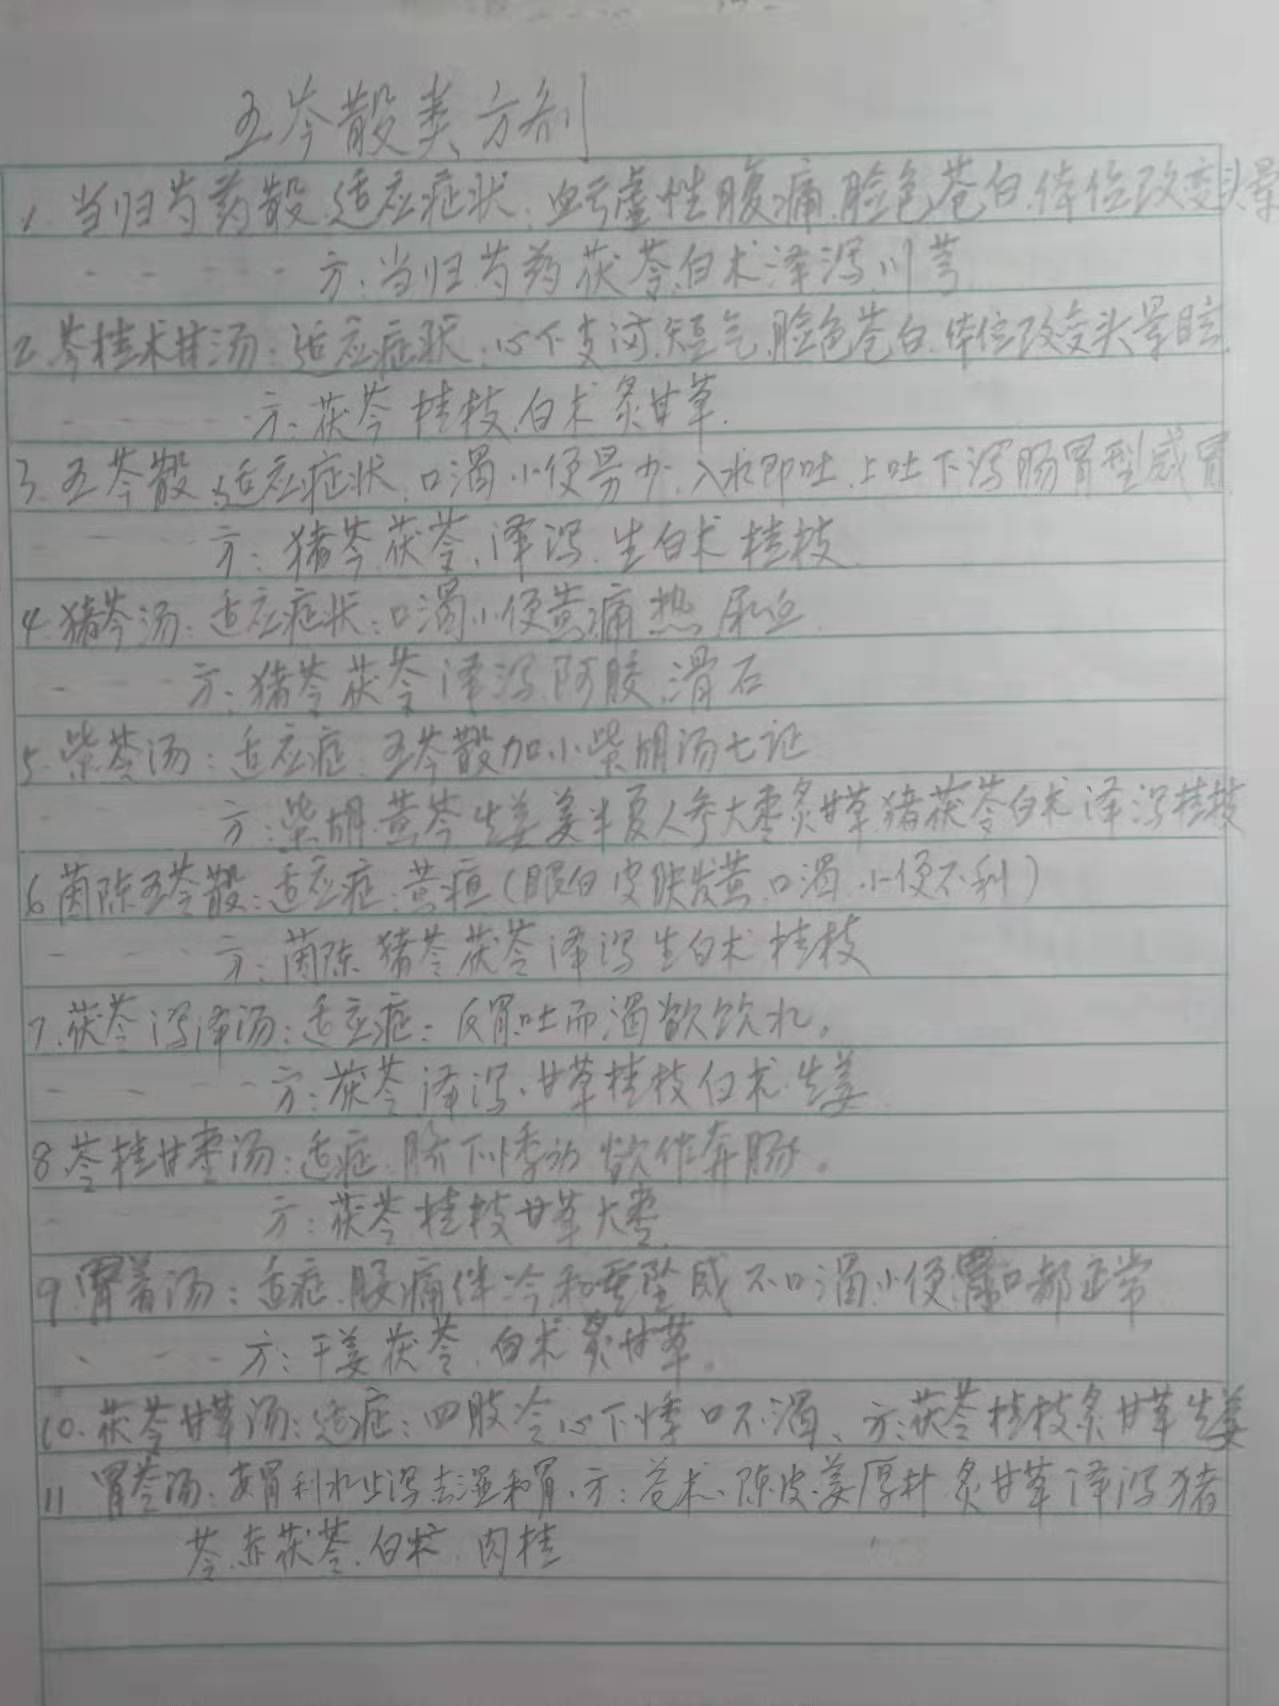 五苓散类方剂
1. 当归芍药散 适应症状. 血亏虚性腹痛.脸色苍白.体位改变头晕
方:当归 芍药 茯苓.白术 泽泻.川芎
2.苓桂术甘汤:适应症状.心下支满.短气.脸色苍白.体位改变头晕目眩
方:茯苓 桂枝.白术 炙甘草.
3.五苓散.适应症状.口渴.小便易少.入水即吐.上吐下泻肠胃型感冒
方:猪苓 茯苓.泽泻.生白术 桂枝
4.猪苓汤:适应症状:口渴.小便黄痛热 尿血
方:猪苓 茯苓 泽泻.阿胶.滑石
5.柴苓汤:适应症.五苓散加小柴胡汤七证
方:柴胡.黄芩 生姜 姜半夏人参大枣炙甘草.猪茯苓白术 泽泻桂枝
6.茵陈五苓散:适应症:黄疸(眼白皮肤发黄.口渴.小便不利)
方:茵陈 猪苓 茯苓 泽泻 生白术 桂枝
7.茯苓泻泽汤:适应症:反胃.吐而渴欲饮水。
方:茯苓 泽泻.甘草桂枝白术.生姜
8.苓桂甘枣汤:适症.脐下悸动 欲作奔肠。
方:茯苓.桂枝 甘草 大枣
9.肾着汤:适症.腰痛伴冷和重坠感 不口渴.小便.胃口都正常
方:干姜 茯苓.白术 炙甘草。
10.茯苓甘草汤:适症:四肢冷心下悸 口不渴、方:茯苓桂枝炙甘草生姜
11 胃苓汤:安胃利水止泻去湿和胃.方:苍术.陈皮.姜厚朴 炙甘草 泽泻猪
苓.赤茯苓.白术.肉桂